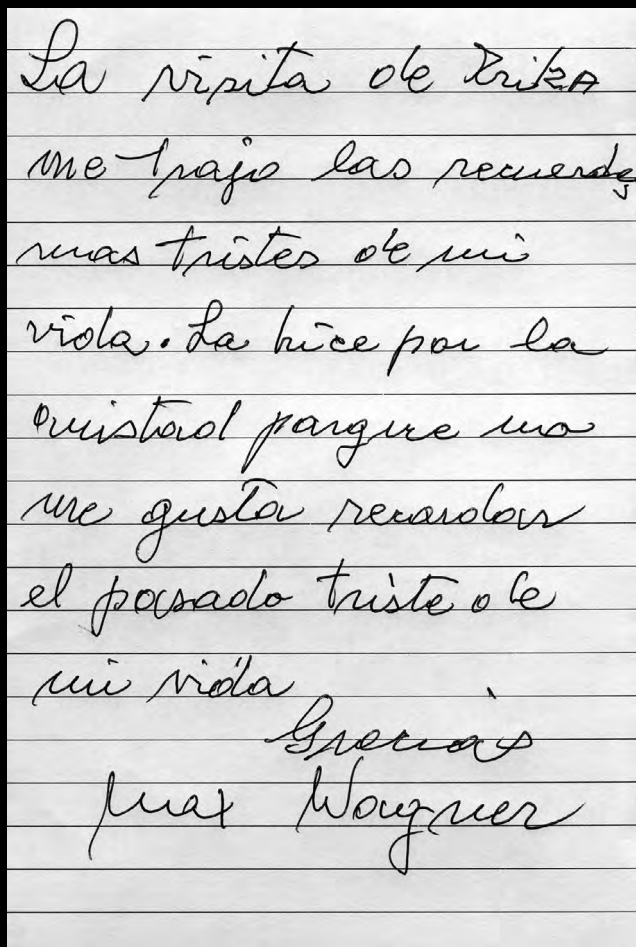 La visita de Erika
me trajo las recuerdos
mas tristes de mi
vida. La hice por la
amistad porque no
me gusta recordar
el pasado triste de
mi vida
Gracias
Max Wagner